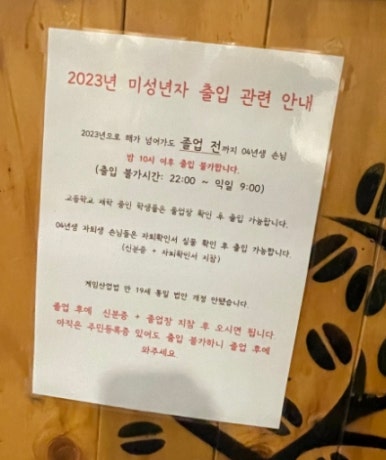 2023년 미성년자 출입 관련 안내
2023년으로 해가 넘어가도 졸업 전까지 04년생 손님
밤 10시 이후 출입 불가합니다.
(출입 불가시간: 22:00 ~ 익일 9:00)
고등학교 재학 중인 학생들은 졸업장 확인 후 출입 가능합니다.
04년생 자퇴생 손님들은 자퇴확인서 실물 확인 후 출입 가능합니다.
(신분증 + 자퇴확인서 지참)
게임산업법 만 19세 통일 법안 개정 안됐습니다.
졸업 후에 신분증 + 졸업장 지참 후 오시면 됩니다.
아직은 주민등록증 있어도 출입 불가하니 졸업 후에
와주세요.